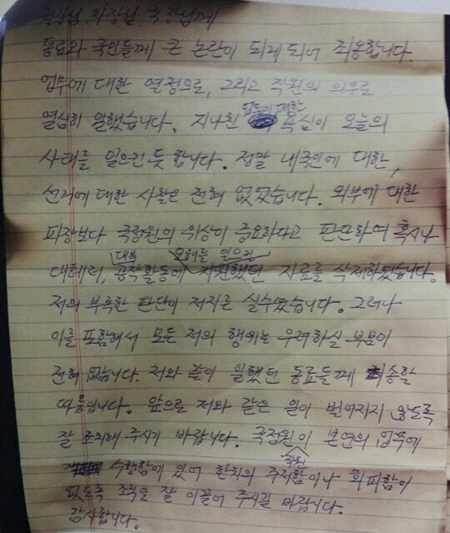 원장님, 차장님, 국장님께
동료와 국민들께 큰 논란이 되게 되어 죄송합니다.
업무에 대한 열정으로, 그리고 직원의 의무로
열심히 일했습니다. 지나친 업무에 대한 욕심이 오늘의
사태를 일으킨 듯 합니다. 정말 내국인에 대한,
선거에 대한 사찰은 전혀 없었습니다. 외부에 대한
파장보다 국정원의 위상이 중요하다고 판단하여 혹시나
대테러, 대북 공작활동에 오해를 일으킨 지원했던 자료를 삭제하였습니다.
저의 부족한 판단이 저지른 실수였습니다. 그러나
이를 포함해서 모든 저의 행위는 우려하실 부분이
전혀 없습니다. 저와 같이 일했던 동료들께 죄송할
따름입니다. 앞으로 저와 같은 일이 벌어지지 않도록
잘 조치해 주시기 바랍니다. 국정원이 본연의 업무에
수행함에 있어 한치의 주저함이나 직원 회피함이
없도록 조직을 잘 이끌어 주시길 바랍니다.
감사합니다.